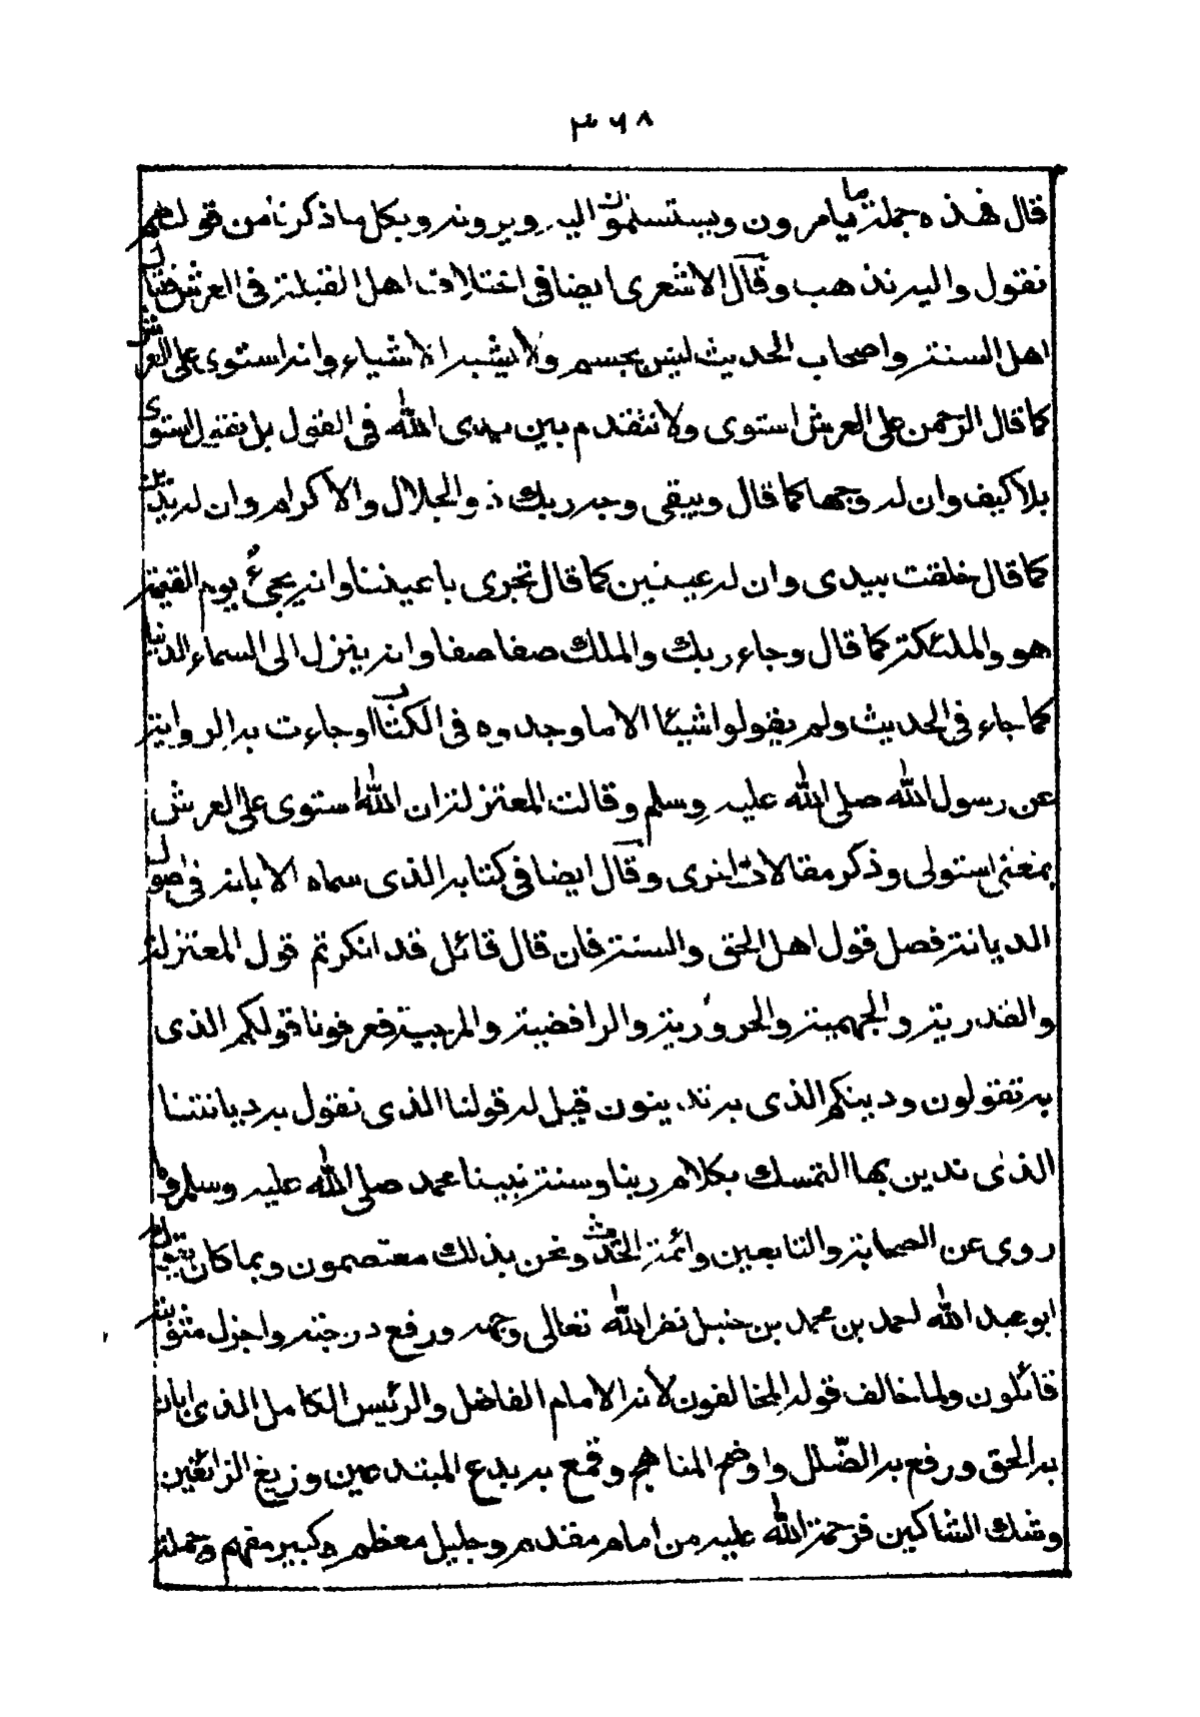 ٣٦٨
قال فهذه جملة ما يامرون ويستسلمون اليه ويرونه وبكل ما ذكرنا من قولهم
نقول واليه نذهب وقال الاشعرى ايضا فى اختلاف اهل القبلة فى العرش فقال
اهل السنة واصحاب الحديث ليس بجسم ولا يشبه الاشياء وانه استوى على العرش
كما قال الرحمن على العرش استوى ولا نتقدم بين يدى الله فى القول بل نقول استوى
بلا كيف وان له وجها كما قال ويبقى وجه ربك ذو الجلال والاكرام وان له يدين
كما قال خلقت بيدى وان له عينين كما قال تجرى باعيننا وانه يجئ يوم القيمة
هو والملئكة كما قال وجاء ربك والملك صفا صفا وانه ينزل الى السماء الدنيا
كما جاء فى الحديث ولم يقولوا شيئا الا ما وجدوه فى الكتاب او جاءت به الرواية
عن رسول الله صلى الله عليه وسلم وقالت المعتزلة ان الله استوى على العرش
بمعنى استولى وذكر مقالات اخرى وقال ايضا فى كتابه الذى سماه الابانة فى اصول
الديانة فصل قول اهل الحق والسنة فان قال قائل قد انكرتم قول المعتزلة
والقدرية والجهمية والحرورية والرافضية والمرجية فعرفونا قولكم الذى
به تقولون ودينكم الذى به تدينون قيل له قولنا الذى نقول به وديانتنا
الذى ندين بها التمسك بكلام ربنا وسنة نبينا محمد صلى الله عليه وسلم وما
روى عن الصحابة والتابعين وائمة الحديث ونحن بذلك معتصمون وبما كان يقول
ابو عبد الله احمد بن محمد بن حنبل نضر الله تعالى وجهه ورفع درجته واجزل مثوبته
قائلون ولما خالف قوله المخالفون لانه الامام الفاضل والرئيس الكامل الذى ابان
به الحق ورفع به الضّلل واوضح المناهج وقمع به بدع المبتدعين وزيغ الزائغين
وشك الشاكين فرحمة الله عليه من امام مقدم وجليل معظم وكبير مفهم وجملة